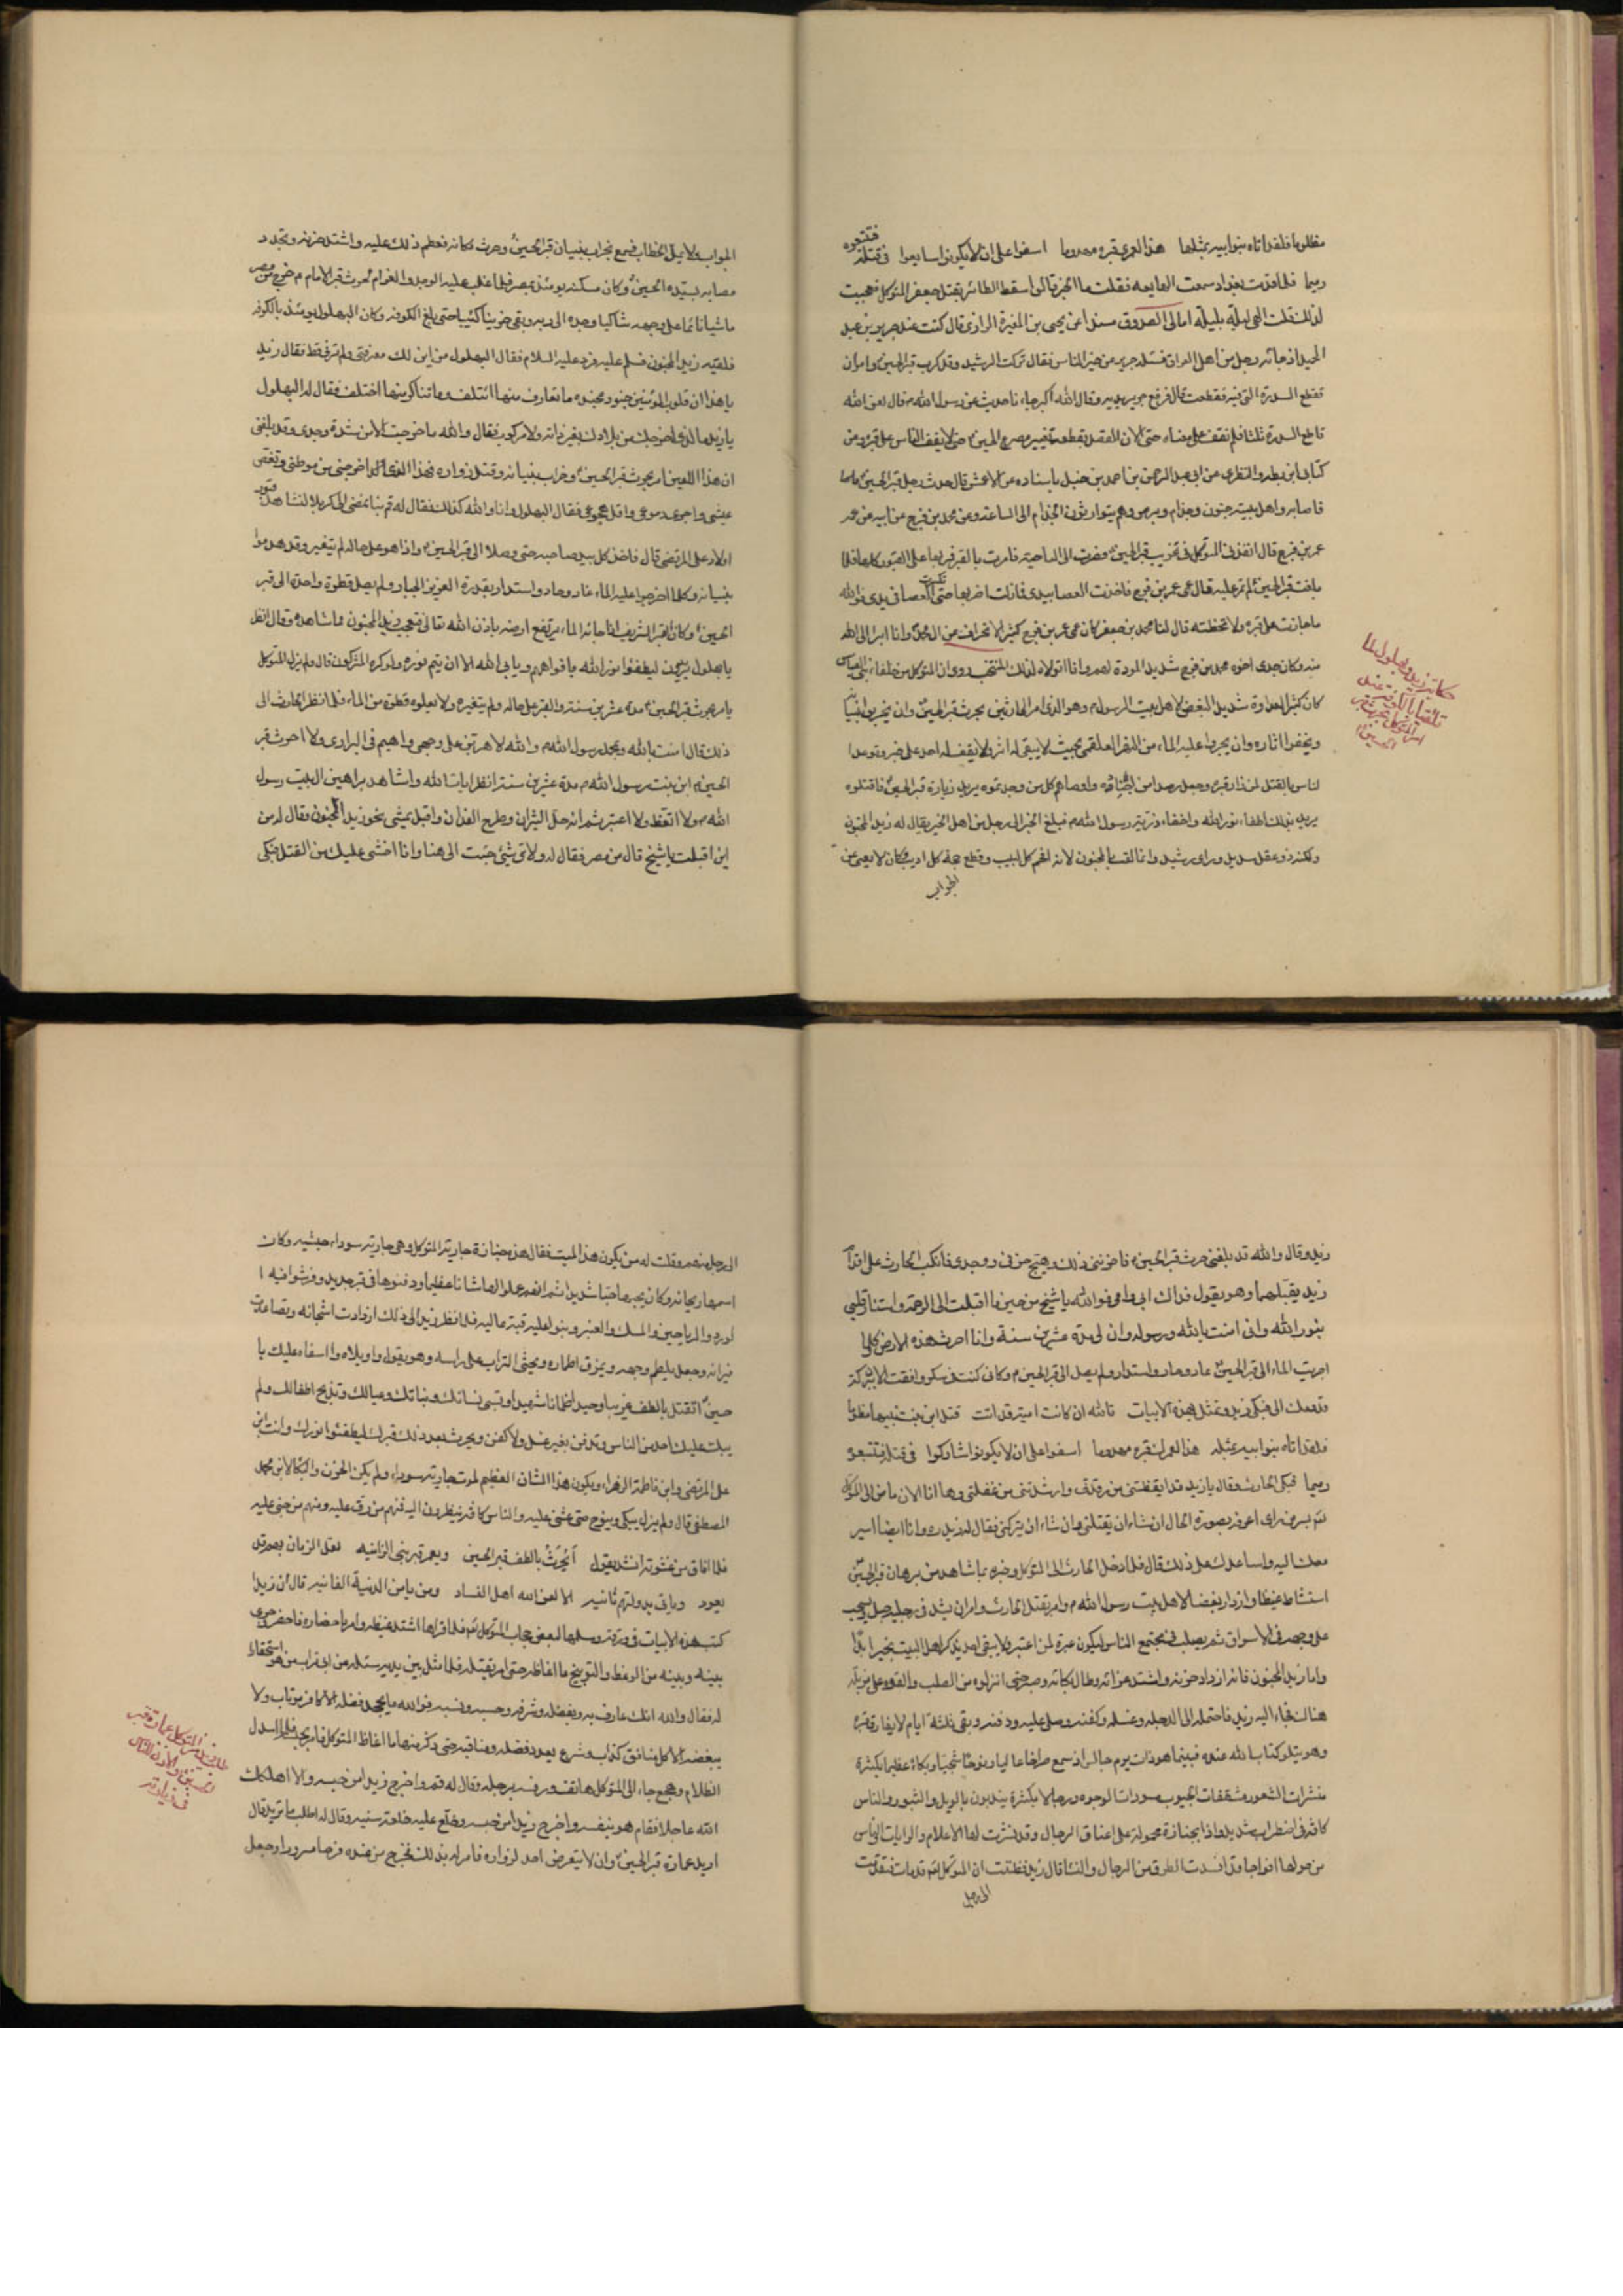 مظلوما فلقد اتاه بنو ابيه بمثلها هذا لعمري قبره مهدوما اسفوا على ان لا يكونوا سايعوا في قتله فتتبعوه
رميما فلما قدمت بغداد سمعت الهايعه فقلت ما الخبر قالوا سقط الطائر بقتل جعفر المتوكل فعجبت
لذلك فقلت الهي ليلة بليلة امالي الصدوق مسندا عن يحيى بن المغيرة الرازي قال كنت عند جرير بن عبد
الحميد اذ جائه رجل من اهل العراق فسئله جرير عن خبر الناس فقال تركت الرشيد وقد كرب قبر الحسين ع وامر ان
تقطع السدرة التي فيه فقطعت قال فرفع جرير يديه وقال الله اكبر جاءنا حديث عن رسول الله ص قال لعن الله
قاطع السدرة ثلثا فلم نقف على معناه حتى الان القصد بقطعه تغيير مصرع الحسين ع حتى لا يقف الناس على قبره ومن
كتابي ابن بطه والنطنزي عن ابي عبد الرحمن بن احمد بن حنبل باسناده عن الاعمش قال احدث رجل على قبر الحسين ع
فاصابه واهل بيته جنون وجذام وبرص وهم يتوارثون الجذام الى الساعة وعن محمد بن فرج عن ابيه عن عمه
عمر بن فرج قال انفذني المتوكل في تخريب قبر الحسين ع فصرت الى الناحية فامرت بالبقر فمر بها على القبور كلها فلما
بلغت قبر الحسين ع لم تمر عليه قال عمي عمر بن فرج فاخذت العصا بيدي فمازلت اضربها حتى تكسرت العصا في يدي فوالله
ما جازت على قبره ولا تخطته قال لنا محمد بن جعفر كان عمي عمر بن فرج كثير الانحراف عن ال محمد ص وانا ابرا الى الله
منه وكان جدي اخوه محمد بن فرج شديد المودة لهم وانا اتولاه لذلك المنتخب روي ان المتوكل من خلفاء بني العباس
كان كثير العداوة شديد البغض لاهل بيت الرسول ص وهو الذي امر الحارثين بحرث قبر الحسين ع وان يخربوا بنيانه
ويخفوا اثاره وان يجروا عليه الماء من النهر العلقمي بحيث لا يبقى له اثر ولا يقف له احد على خبر وتوعد ا
لناس بالقتل لمن زار قبره وجعل رصدا من اجناده واوصاهم كل من وجدتموه يريد زيارة قبر الحسين ع فاقتلوه
يريد بذلك اطفاء نور الله واخفاء ذرية رسول الله ص فبلغ الخبر الى رجل من اهل الخير يقال له زيد المجنون
ولكنه ذو عقل سديد وراي رشيد وانما لقب بالمجنون لانه افحم كل لبيب وقطع حجة كل اديب وكان لا يعيى من
الجواب
حكاية زيد وبهلول لما
تلاقيا بالكوفة عند
امر المتوكل بحرث قبر
الحسين ع
الجواب ولا يمل الخطاب فسمع بخراب بنيان قبر الحسين ع وحرث مكانه فعظم ذلك عليه واشتد حزنه وتجدد
مصابه بسيده الحسين ع وكان مسكنه يومئذ بمصر فلما غلب عليه الوجد والغرام لحرث قبر الامام ع خرج من مصر
ماشيا هائما على وجهه شاكيا وجده الى ربه وبقي حزينا كئيبا حتى بلغ الكوفه وكان البهلول يومئذ بالكوفه
فلقيه زيد المجنون فسلم عليه فرد عليه السلام فقال البهلول من اين لك معرفتي ولم ترني قط فقال زيد
يا هذا ان قلوب المؤمنين جنود مجنده ما تعارف منها ائتلف وما تناكر منها اختلف فقال له البهلول
يا زيد ما الذي اخرجك من بلادك بغير دابة ولا مركوب فقال والله ما خرجت الا من شدة وجدي وقد بلغني
ان هذا اللعين امر بحرث قبر الحسين ع وخراب بنيانه وقتل زواره فهذا الذي اخرجني من موطني ونغص
عيشي واجرى دموعي واقل هجوعي فقال البهلول وانا والله كذلك فقال له قم بنا نمضي الى كربلا لنشاهد قبور
اولاد علي المرتضى قال فاخذ كل بيد صاحبه حتى وصلا الى قبر الحسين ع واذا هو على حاله لم يتغير وقد هدموا
بنيانه وكلما اجروا عليه الماء غار وحار واستدار بقدرة العزيز الجبار ولم يصل قطرة واحدة الى قبر
الحسين ع وكان القبر الشريف اذا جائه الماء يرتفع ارضه باذن الله تعالى فتعجب زيد المجنون مما شاهده وقال انظر
يا بهلول يريدون ليطفئوا نور الله بافواههم ويابى الله الا ان يتم نوره ولو كره المشركون قال ولم يزل المتوكل
يامر بحرث قبر الحسين ع مدة عشرين سنة والقبر على حاله ولم يتغير ولا يعلوه قطرة من الماء فلما نظر الحارث الى
ذلك قال امنت بالله وبمحمد رسول الله ص والله لاهربن على وجهي واهيم في البراري ولا احرث قبر
الحسين ع ابن بنت رسول الله ص مدة عشرين سنة انظر ايات الله واشاهد براهين ال بيت رسول
الله ص ولا اتعظ ولا اعتبر ثم انه حل الثيران وطرح الفدان واقبل يمشي نحو زيد المجنون وقال له من
اين اقبلت يا شيخ قال من مصر فقال له ولاي شيئ جئت الى هنا وانا اخشى عليك من القتل فبكى
زيد وقال والله قد بلغني حرث قبر الحسين ع فاحزنني ذلك وهيج حزني ووجدي فانكب الحارث على اقدام
زيد يقبلهما وهو يقول فداك ابي وامي فوالله يا شيخ من حين ما اقبلت الي اقبلت الى الرحمة واستنار قلبي
بنور الله واني امنت بالله ورسوله وان لي مدة عشرين سنة وانا احرث هذه الارض كلما
اجريت الماء الى قبر الحسين ع غار وحار واستدار ولم يصل الى قبر الحسين ع وكاني كنت في سكر وافقت الان ببركة
قدومك الي فبكى زيد وتمثل بهذه الابيات تالله ان كانت امية قد اتت قتل ابن بنت نبيها مظلوما
فلقد اتاه بنو ابيه بمثله هذا لعمرك قبره مهدوما اسفوا على ان لا يكونوا شاركوا في قتله فتتبعوه
رميما فبكى الحارث وقال يا زيد قد ايقظتني من رقدتي وارشدتني من غفلتي وها انا الان ماض الى المتوكل
بسر من راى اعرفه بصورة الحال ان شاء ان يقتلني وان شاء ان يتركني فقال له زيد ره وانا ايضا اسير
معك اليه واساعدك على ذلك قال فلما دخل الحارث الى المتوكل وخبره بما شاهد من برهان قبر الحسين ع
استشاط غيظا وازداد بغضا لاهل بيت رسول الله ص وامر بقتل الحارث وامر ان يشد في رجليه حبل ويسحب
على وجهه في الاسواق ثم يصلب في مجتمع الناس ليكون عبرة لمن اعتبر ولا يبقى احد يذكر اهل البيت بخير ابدا
واما زيد المجنون فانه ازداد حزنه واشتد عزائه وطال بكائه وصبر حتى انزلوه من الصلب والقوه على مزبلة
هناك فجاء اليه زيد فاحتمله الى الدجله وغسله وكفنه وصلى عليه ودفنه وبقي ثلثة ايام لا يفارق قبره
وهو يتلو كتاب الله عنده فبينما هو ذات يوم جالس اذ سمع صراخا عاليا ونوحا شجيا وبكاء عظيما بكثرة
منشرات الشعور مشققات الجيوب مسودات الوجوه ورجالا بكثرة يندبون بالويل والثبور والناس
كافة في اضطراب شديد واذا بجنازة محمولة على اعناق الرجال وقد نشرت لها الاعلام والرايات والناس
من حولها افواجا قد انسدت الطرق من الرجال والنساء قال زيد فظننت ان المتوكل لعنه قد مات فتقدمت
الى رجل
الى رجل منهم وقلت له من يكون هذا الميت فقال هذه جنازة جارية المتوكل وهي جارية سوداء حبشيه وكان
اسمها ريحانه وكان يحبها حبا شديدا ثم انهم عملوا لها شانا عظيما ودفنوها في قبر جديد وفرشوا فيه ا
لورد والرياحين والمسك والعنبر وبنوا عليه قبة عاليه فلما نظر زيد الى ذلك ازدادت اشجانه وتصاعدت
نيرانه وجعل يلطم وجهه ويمزق اطماره ويحثي التراب على راسه وهو يقول واويلاه وا اسفاه عليك يا
حسين ع اتقتل بالطف غريبا وحيدا ظمانا شهيدا وتسبى نسائك وبناتك وعيالك وتذبح اطفالك ولم
يبك عليك احد من الناس وتدفن بغير غسل ولا كفن ويحرث بعد ذلك قبرك ليطفئوا نورك وانت ابن
علي المرتضى وابن فاطمة الزهراء ويكون هذا الشان العظيم لموت جارية سوداء ولم يكن الحزن والبكا لابن محمد
المصطفى قال ولم يزل يبكي وينوح حتى غشي عليه والناس كافة ينظرون اليه فمنهم من رق عليه ومنهم من جنى عليه
فلما افاق من غشوته انشد يقول أيُحرَثُ بالطف قبر الحسين ويعمر قبر بني الزانيه لعل الزمان بهم قد
يعود وياتي بدولتهم ثانيه الا لعن الله اهل الفساد ومن يامن الدنية الفانيه قال ان زيدا
كتب هذه الابيات في ورقة وسلمها لبعض حجاب المتوكل لعنه فلما قراها اشتد غيظه وامر باحضاره فاحضر وجرى
بينه وبينه من الوعظ والتوبيخ ما اغاظه حتى امر بقتله فلما مثل بين يديه سئله عن ابي تراب من هو استحقارا
له فقال والله انك عارف به وبفضله وشرفه وحسبه ونسبه فوالله ما يجحد فضله الا كافر مرتاب ولا
يبغضه الا كل منافق كذاب وشرع يعدد فضله ومناقبه حتى ذكر منها ما اغاظ المتوكل فامر بحبسه فلما اسدل
الظلام وهجع جاء الى المتوكل هاتف ورفسه برجله وقال له قم واخرج زيدا من حبسه والا اهلكك
الله عاجلا فقام هو بنفسه واخرج زيدا من حبسه وخلع عليه خلعة سنيه وقال له اطلب ما تريد قال
اريد عمارة قبر الحسين ع وان لا يتعرض احد لزواره فامر له بذلك فخرج من عنده فرحا مسرورا وجعل
طلب زيد من المتوكل عمارة قبر
الحسين ع والاذن للناس
في زيارته